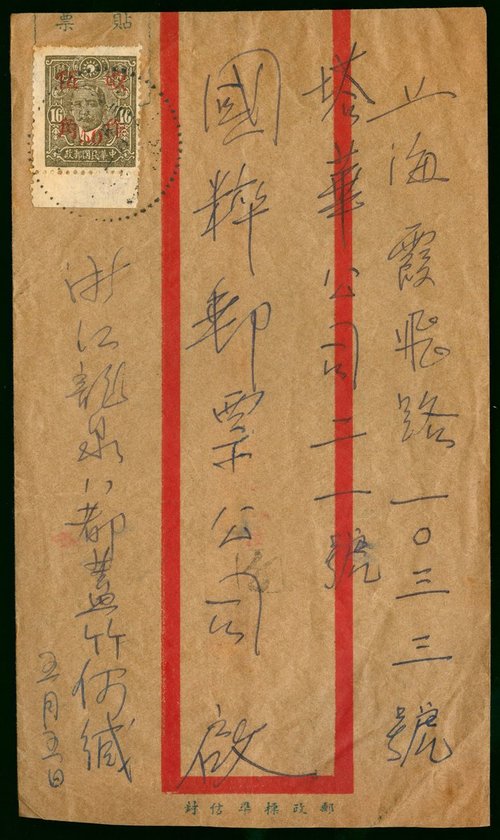 上海霞飛路一〇三三號
塔華公司二一號
國粹郵票公司 啟
浙江龍泉八都蓋竹何緘
五月五日
票 貼
16 16
政郵國民華中
封信準標政郵